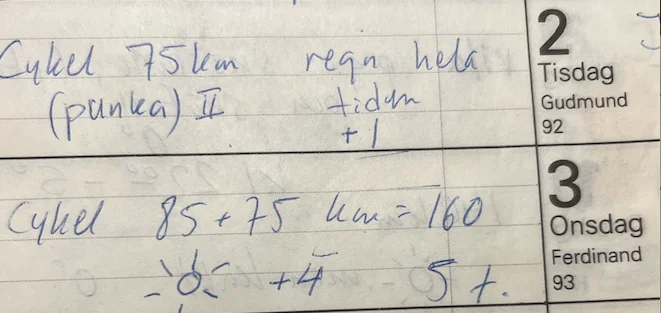 Cykel 75 km regn hela
(punka) II tiden
+1
2
Tisdag
Gudmund
92
Cykel 85 + 75 km = 160
+4 5 t.
3
Onsdag
Ferdinand
93